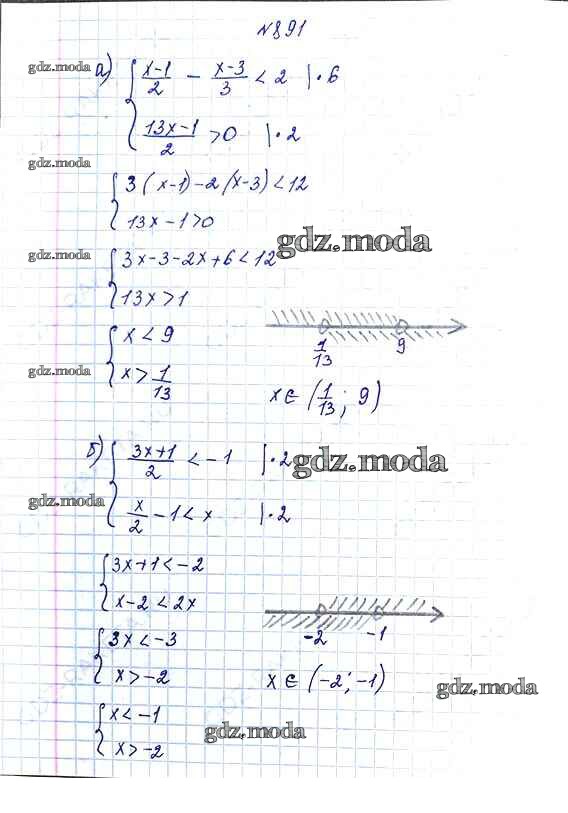 №891
gdz.moda
а) { (x-1)/2 - (x-3)/3 < 2 |·6
(13x-1)/2 > 0 |·2
gdz.moda
{ 3(x-1)-2(x-3)<12
13x-1>0
gdz.moda
gdz.moda
{ 3x-3-2x+6<12
13x>1
{ x<9
1/13 9
gdz.moda
x> 1/13
x∈(1/13; 9)
б) { (3x+1)/2 < -1 |·2
gdz.moda
gdz.moda
x/2 -1<x |·2
{ 3x+1<-2
x-2<2x
-2 -1
{ 3x<-3
x>-2
x∈(-2; -1)
gdz.moda
{ x<-1
gdz.moda
x>-2